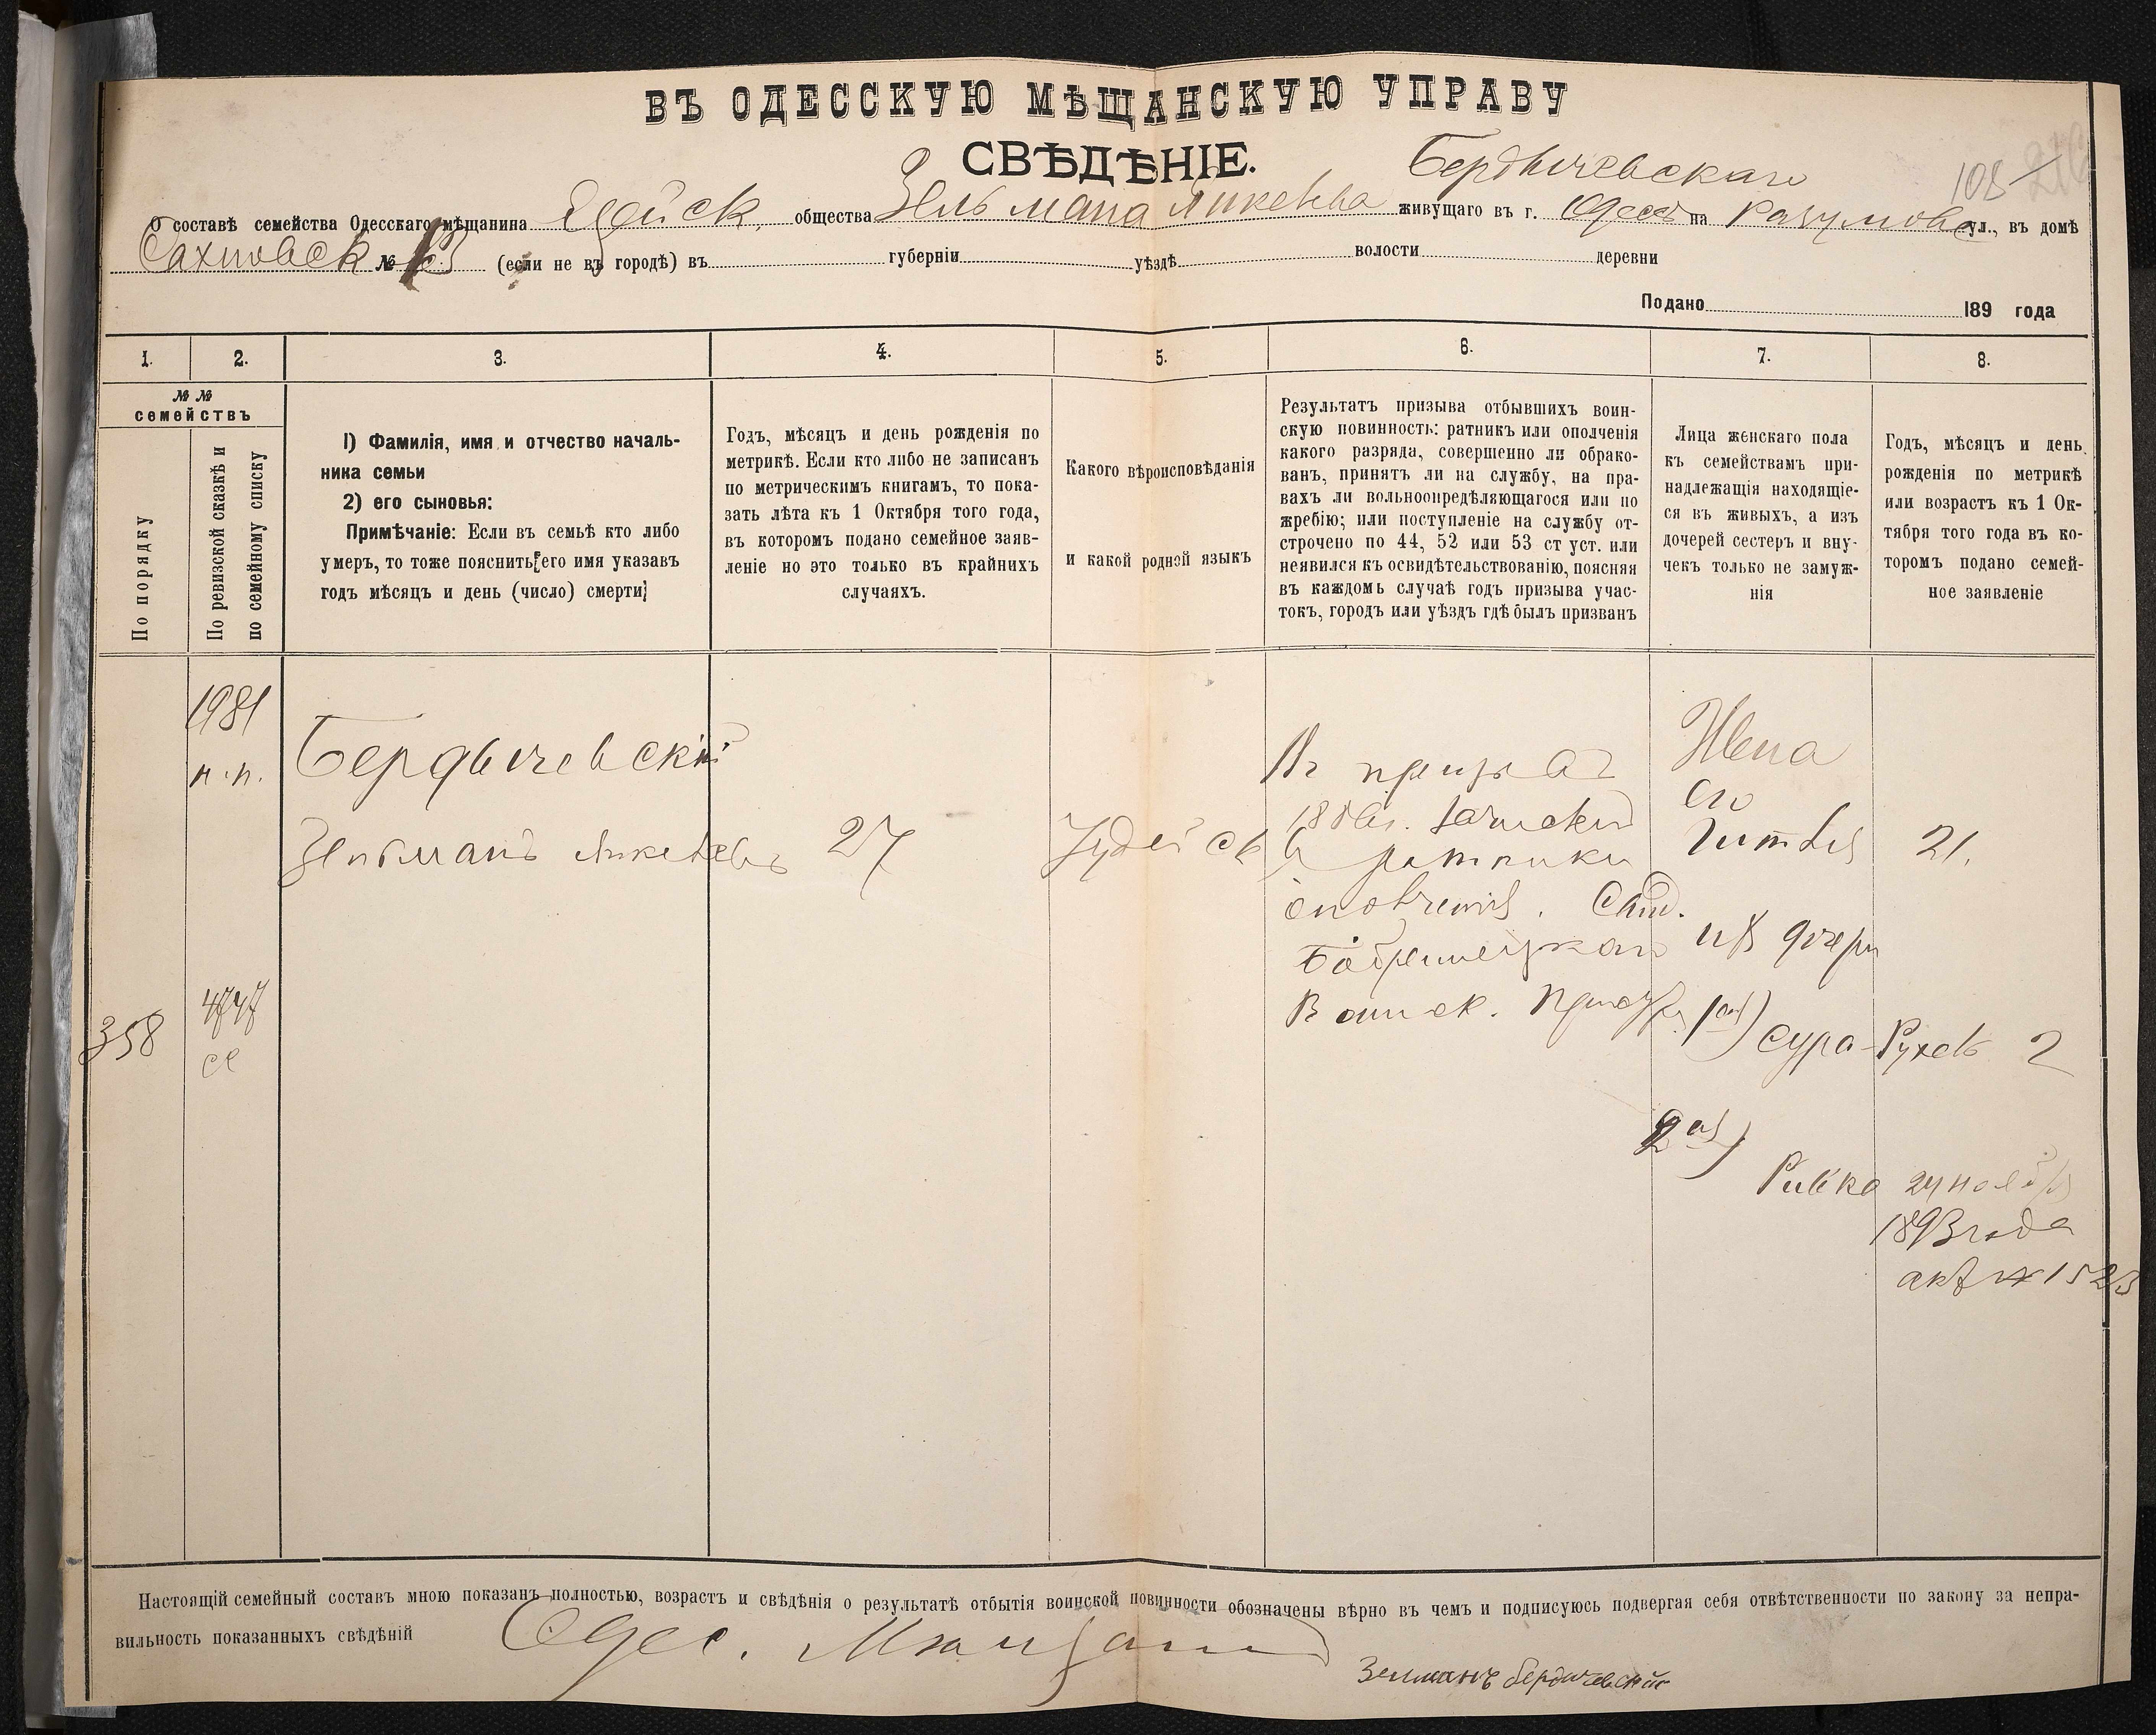 ВЪ ОДЕССКУЮ МѢЩАНСКУЮ УПРАВУ
СВѢДѢНІЕ.
Бердичевскаго
108
О составѣ семейства Одесскаго мѣщанина общества Зельмана Янкелева живущаго въ г. Одессѣ на Разумовс ул., въ домѣ
Сахновск № 13 (если не въ городѣ) въ губерніи уѣздѣ волости деревни
Подано 189 года
1. 2. 3. 4. 5. 6. 7. 8.
№ №
семействъ
По порядку
По ревизской сказкѣ и
по семейному списку
1) Фамилія, имя и отчество началь-
ника семьи
2) его сыновья:
Примѣчаніе: Если въ семьѣ кто либо
умеръ, то тоже пояснить его имя указавъ
годъ мѣсяцъ и день (число) смерти;
Годъ, мѣсяцъ и день рожденія по
метрикѣ. Если кто либо не записанъ
по метрическимъ книгамъ, то пока-
зать лѣта къ 1 Октября того года,
въ которомъ подано семейное заяв-
леніе но это только въ крайнихъ
случаяхъ.
Какого вѣроисповѣданія
и какой родной языкъ
Результатъ призыва отбывшихъ воин-
скую повинность: ратникъ или ополченія
какого разряда, совершенно ли обрако-
ванъ, принятъ ли на службу, на пра-
вахъ ли вольноопредѣляющагося или по
жребію; или поступленіе на службу от-
строчено по 44, 52 или 53 ст уст. или
неявился къ освидѣтельствованію, поясняя
въ каждомъ случаѣ годъ призыва учас-
токъ, городъ или уѣздъ гдѣ былъ призванъ
Лица женскаго пола
къ семействамъ при-
надлежащія находящіе-
ся въ живыхъ, а изъ
дочерей сестеръ и вну-
чекъ только не замуж-
нія
Годъ, мѣсяцъ и день
рожденія по метрикѣ
или возрастъ къ 1 Ок-
тября того года въ ко-
торомъ подано семей-
ное заявленіе
1981
п. п.
358
4747
сс
Бердичевскій
Зельманъ Янкелевъ
27
Іудейск
Въ призывъ
въ ратники
ополченія.
Воинск. Присут.
Жена
его
Гитля 21.
ихъ дочери
1ая) Сура-Рухль 2
2ая)
Ривка 24 ноября
1893 года
актъ № 1523
Настоящій семейный составъ мною показанъ полностью, возрастъ и свѣдѣнія о результатѣ отбытія воинской повинности обозначены вѣрно въ чемъ и подписуюсь подвергая себя отвѣтственности по закону за непра-
вильность показанныхъ свѣдѣній Одес. Мѣщанинъ
Зельманъ Бердичевский